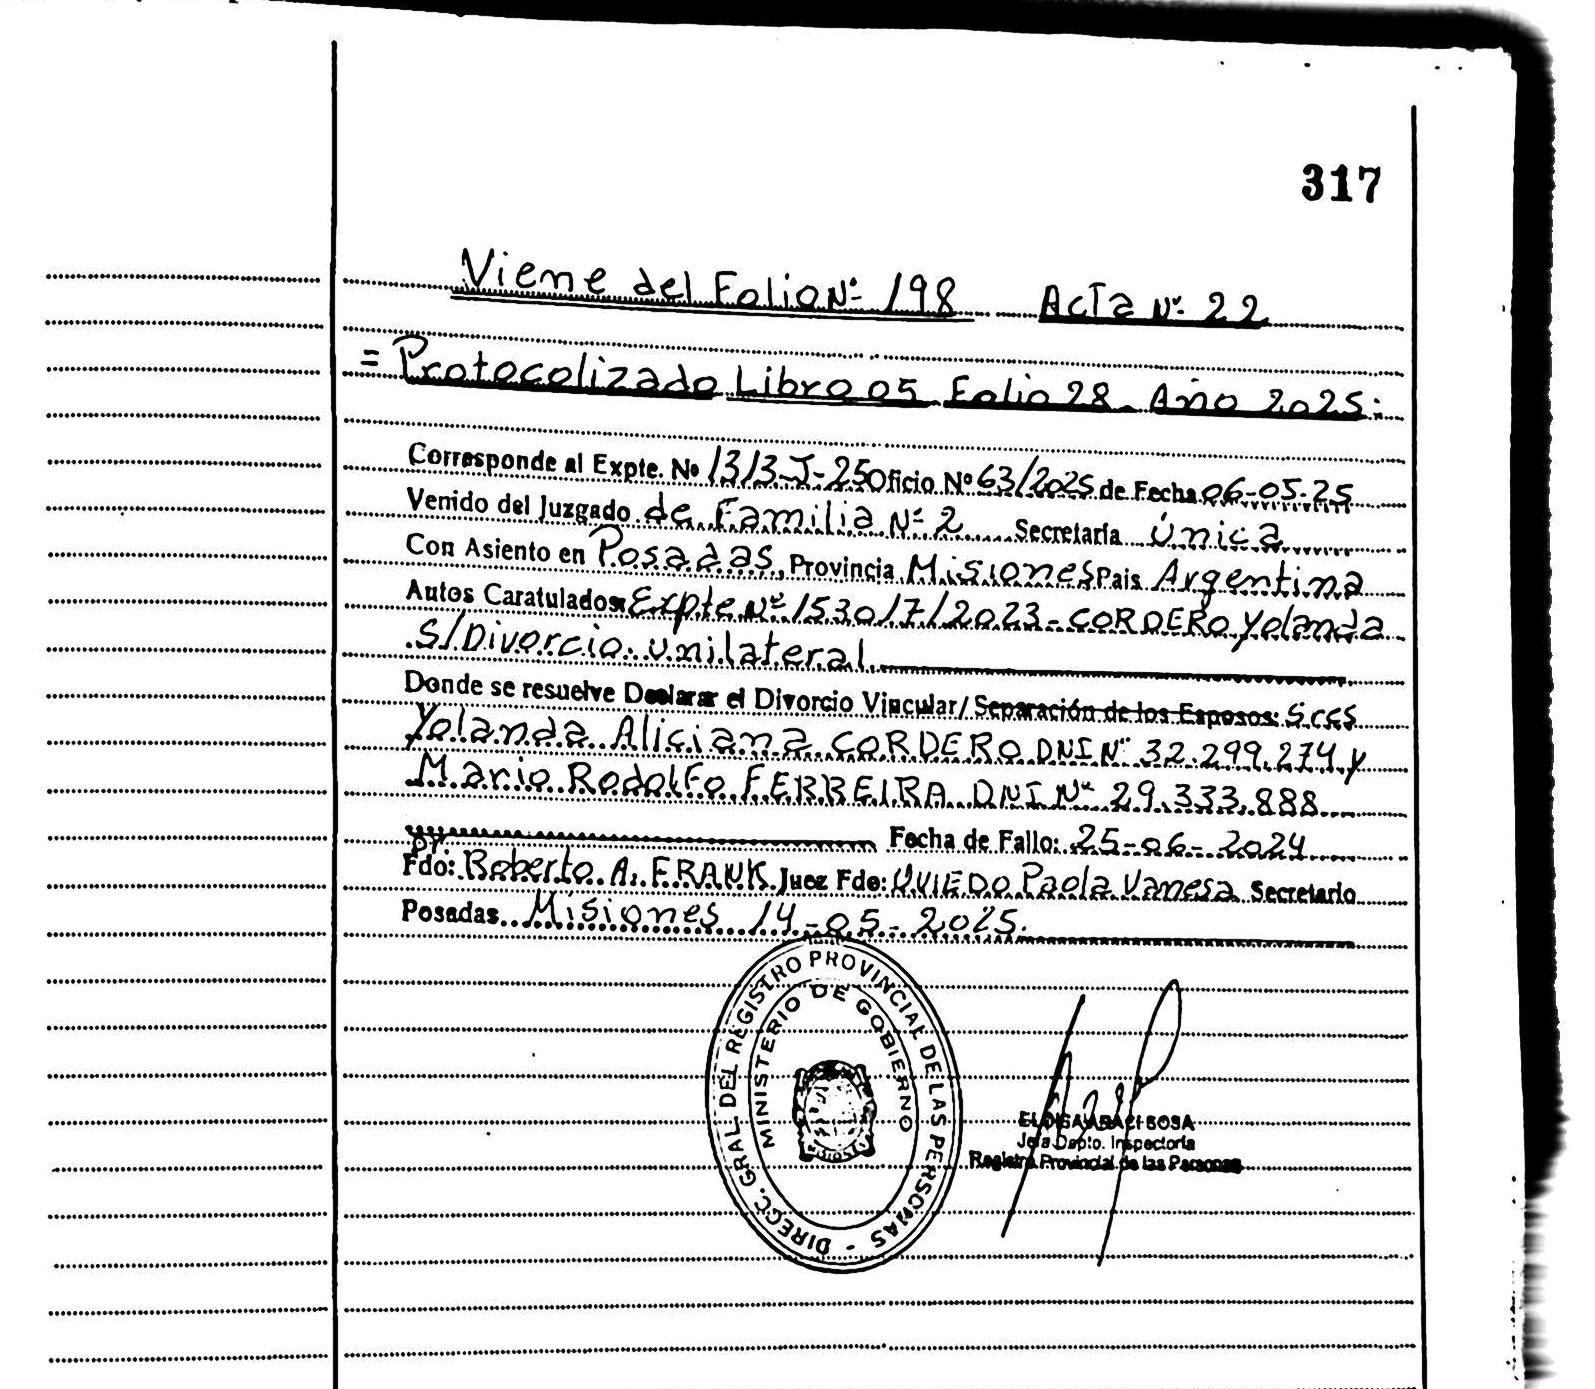 317
Viene del Folio Nº 198 Acta Nº 22
= Protocolizado Libro 05 Folio 28 Año 2025:
Corresponde al Expte. Nº 1313-J-25 Oficio Nº 63/2025 de Fecha 06-05-25
Venido del Juzgado de Familia Nº 2 Secretaría única
Con Asiento en Posadas, Provincia Misiones Pais Argentina
Autos Caratulados: Expte Nº 153017/2023 - CORDERO Yolanda
S/Divorcio unilateral
Donde se resuelve Declarar el Divorcio Vincular/ Separación de los Esposos: Sres
Yolanda Aliciana CORDERO DNI Nº 32.299.274 y
Mario Rodolfo FERREIRA DNI Nº 29.333.888
Fecha de Fallo: 25-06-2024
pr.
Fdo: Roberto A. FRANK Juez Fdo: OVIEDO Paola Vanesa Secretario
Posadas Misiones 14-05-2025.
DIRECC. GRAL DEL REGISTRO PROVINCIAL DE LAS PERSONAS -
MINISTERIO DE GOBIERNO
ELOISA ARACI SOSA
Jefa Dapto. Inspectoría
Registro Provincial de las Personas